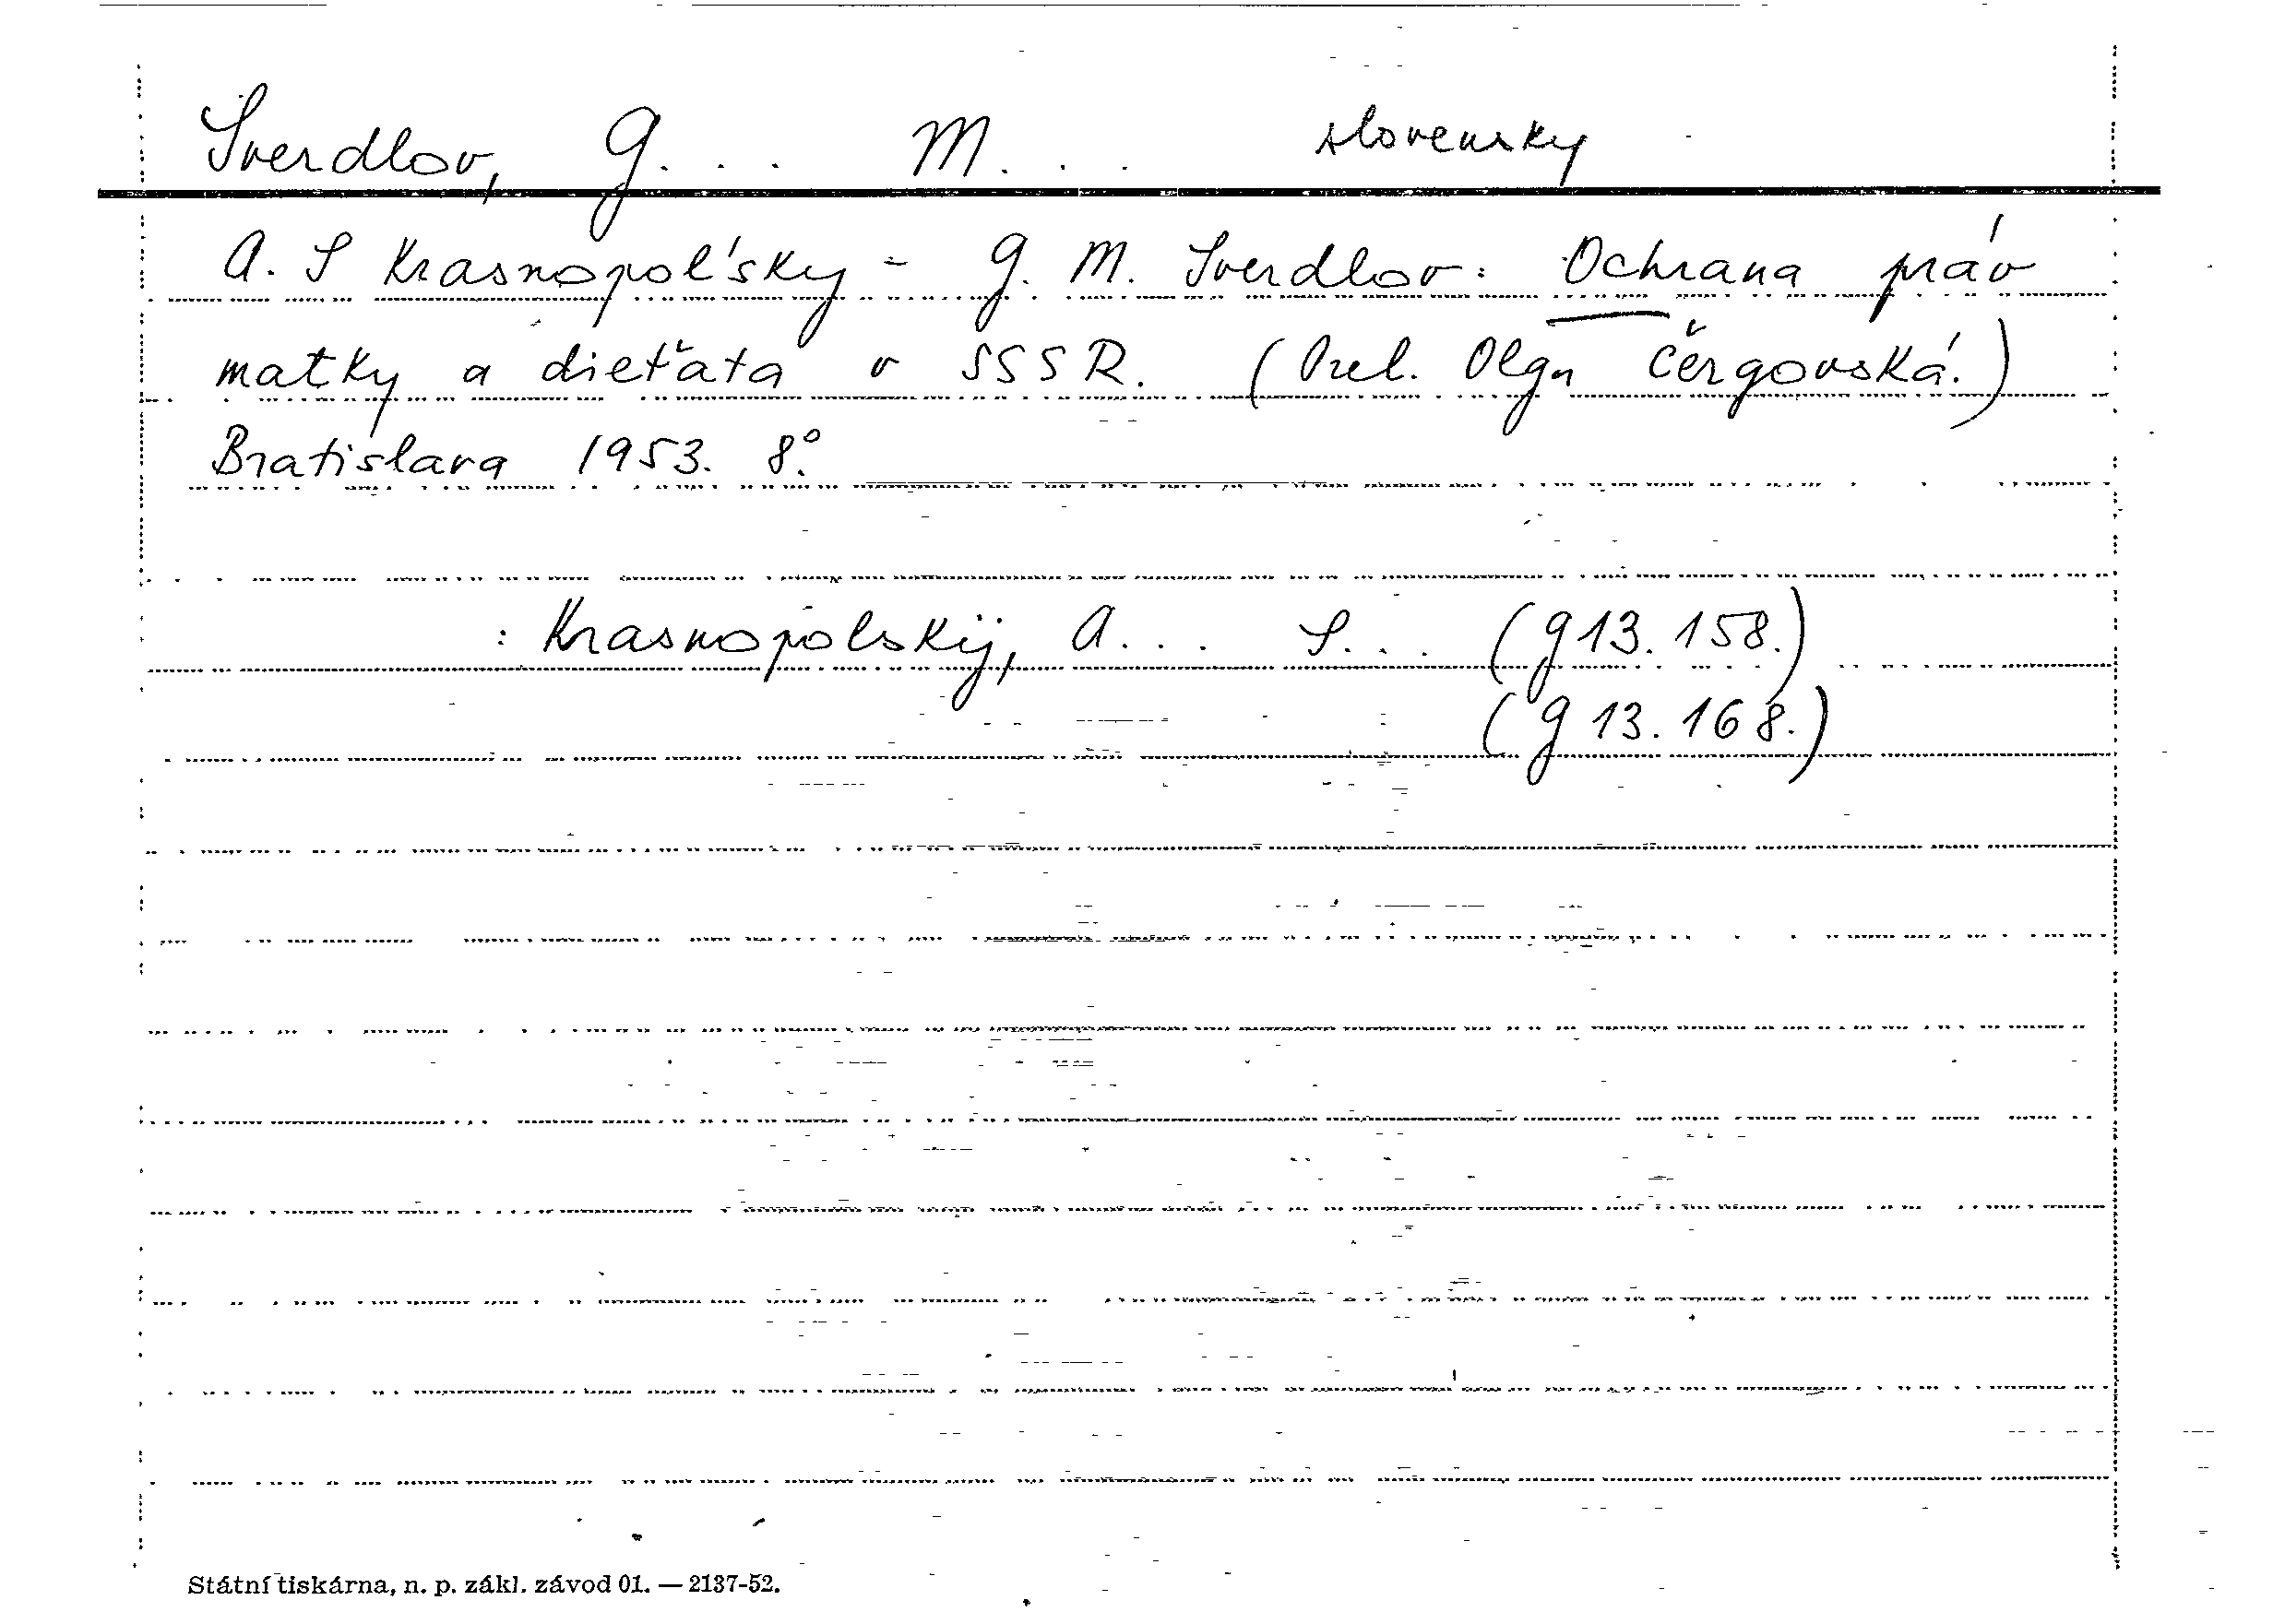 Sverdlov, G... M... slovensky
A. S Krasnopoľsky - G. M. Sverdlov: Ochrana práv
matky a dieťaťa v SSSR. (Prel. Olga Čergovská.)
Bratislava 1953. 8°.
: Krasnopolskij, A... S... (G 13.158.)
(G 13.168.)
Státní tiskárna, n. p. zákl. závod 01. — 2137-52.